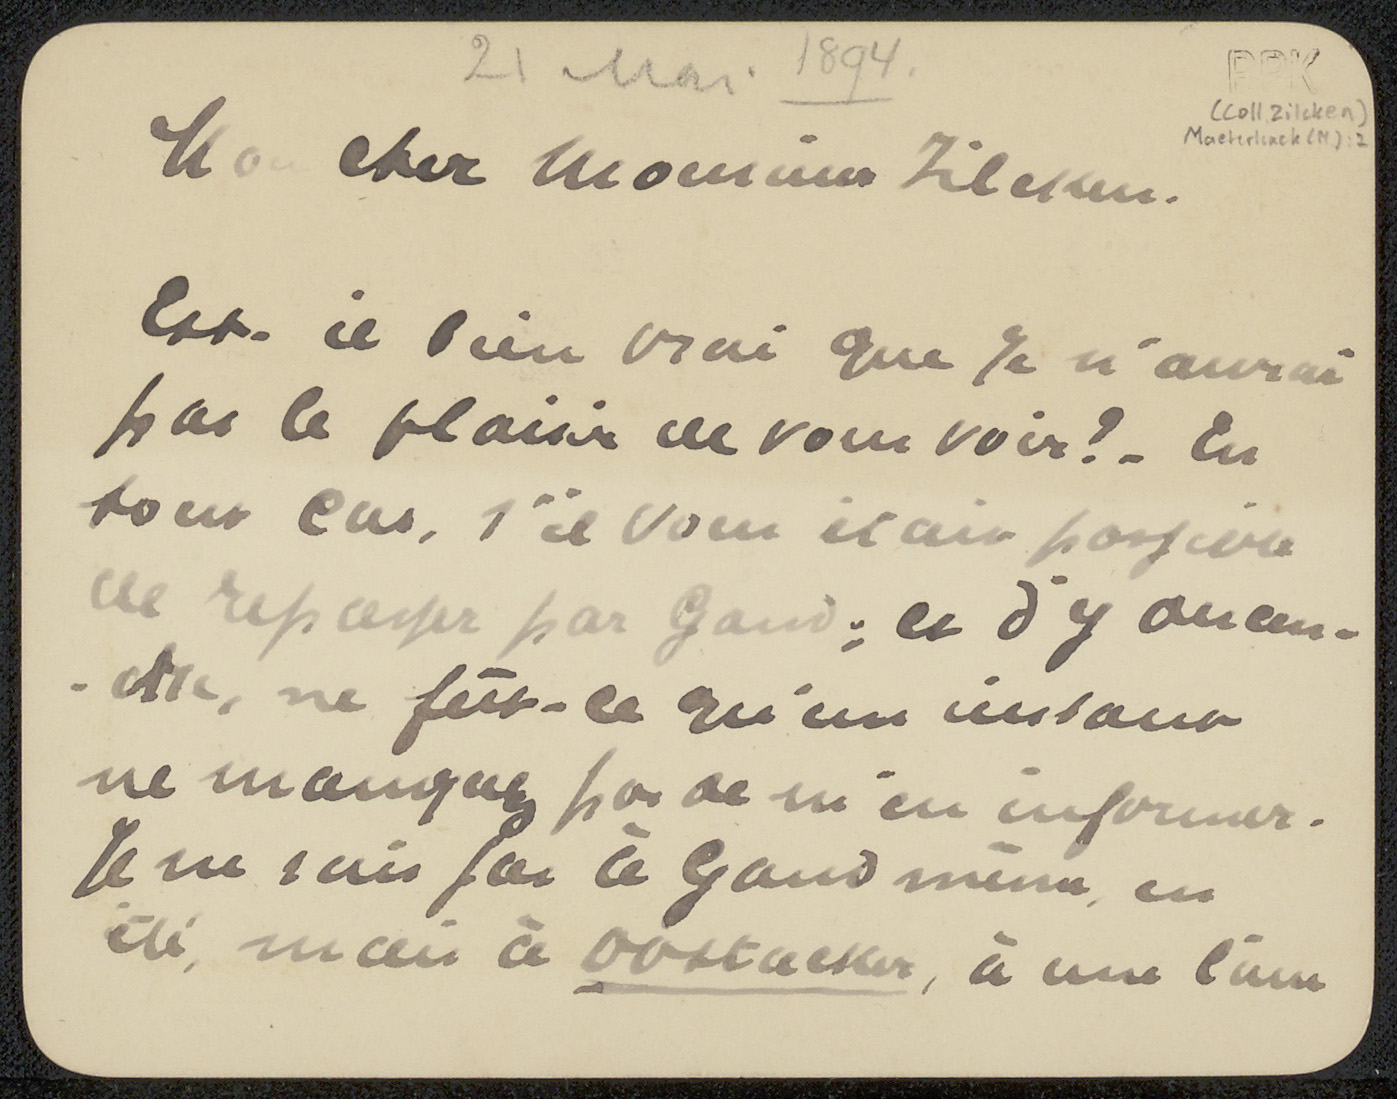 21 Mai. 1894.
PPK
(Coll. Zilcken)
Maeterlinck (M) : 2
Mon cher Monsieur Zilcken.
Est-il bien vrai que je n'aurai
pas le plaisir de vous voir? - En
tout cas, s'il vous était possible
de repasser par Gand; et d'y descen-
-dre, ne fût-ce qu'un instant
ne manquez pas de m'en informer.
Je ne suis pas à Gand même, en
été, mais à Oostacker, à une lieue